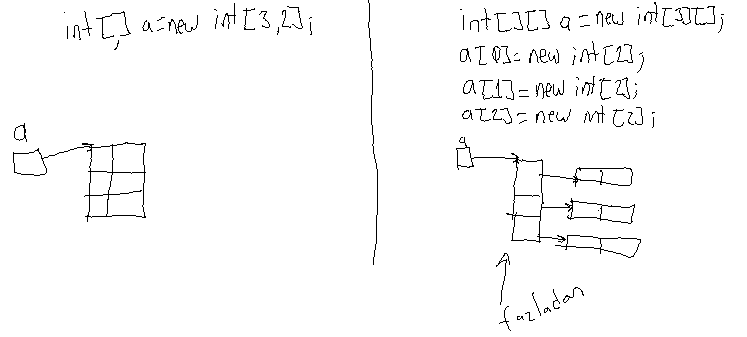 int[,] a=new int[3,2];
a
int[][] a=new int[3][];
a[0]=new int[2];
a[1]=new int[2];
a[2]=new int[2];
a
fazladan